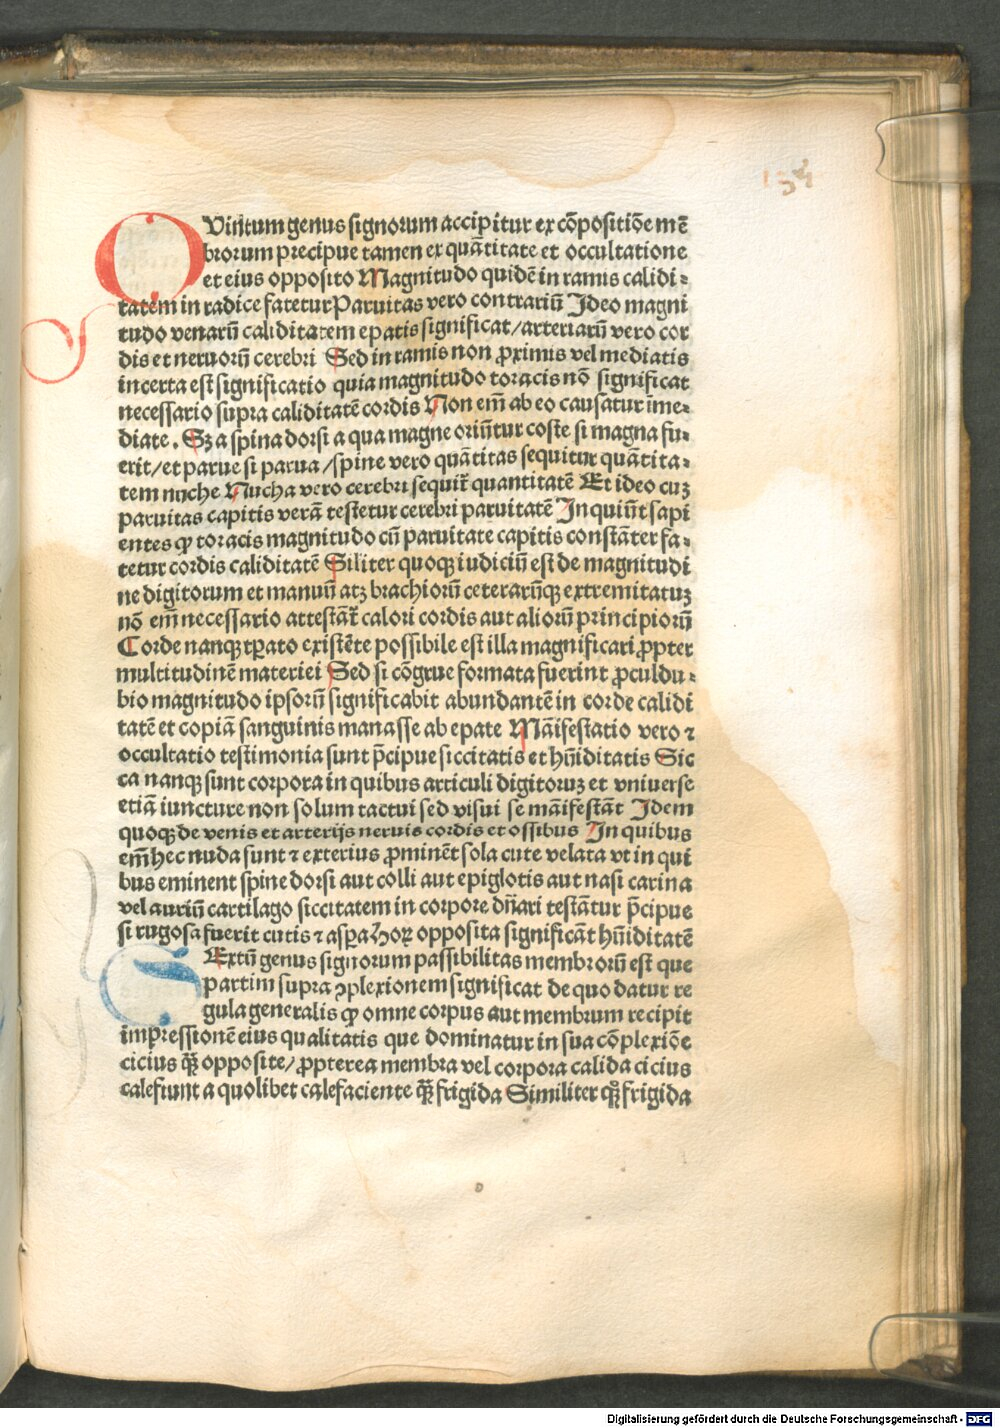 154
QVintum genus signorum accipitur ex cōpositiōe mē
brorum precipue tamen ex quātitate et occultatione
et eius opposito Magnitudo quidē in ramis calidi⸗
tatem in radice fatetur Paruitas vero contrariū Ideo magni
tudo venarū caliditatem epatis significat/arteriarū vero cor
dis et neruorū cerebri Sed in ramis non ꝓximis vel mediatis
incerta est significatio quia magnitudo toracis nō significat
necessario supra caliditatē cordis Non em̄ ab eo causatur īme⸗
diate. Sꝫ a spina dorsi a qua magne oriūtur coste si magna fu⸗
erit/et parue si parua/spine vero quātitas sequitur quātita⸗
tem nuche Nucha vero cerebri sequit᷑ quantitatē Et ideo cuꝫ
paruitas capitis verā testetur cerebri paruitatē Inquiūt sapi
entes ꝙ toracis magnitudo cū paruitate capitis constāter fa⸗
tetur cordis caliditatē Siliter quoqꝫ iudiciū est de magnitudi
ne digitorum et manuū atꝫ brachiorū ceterarūqꝫ extremitatuꝫ
nō em̄ necessario attestāt᷑ calori cordis aut aliorū principiorū
Corde nanqꝫ tꝑato existēte possibile est illa magnificari ꝓpter
multitudinē materiei Sed si cōgrue formata fuerint ꝓculdu⸗
bio magnitudo ipsorū significabit abundantē in corde calidi
tatē et copiā sanguinis manasse ab epate Māifestatio vero ⁊
occultatio testimonia sunt p̄cipue siccitatis et hūiditatis Sic
ca nanqꝫ sunt corpora in quibus articuli digitoruꝫ et vniuerse
etiā iuncture non solum tactui sed visui se māifestāt Idem
quoqꝫ de venis et arterijs neruis cordis et ossibus In quibus
em̄ hec nuda sunt ⁊ exterius ꝓminēt sola cute velata vt in qui
bus eminent spine dorsi aut colli aut epiglotis aut nasi carina
vel auriū cartilago siccitatem in corpore dn̄ari testātur p̄cipue
si rugosa fuerit cutis ⁊ aspa hoꝝ opposita significāt hūiditatē
SExtū genus signorum passibilitas membrorū est que
partim supra ꝯplexionem significat de quo datur re
gula generalis ꝙ omne corpus aut membrum recipit
impressionē eius qualitatis que dominatur in sua cōplexiōe
cicius q̄ꝫ opposite/ꝓpterea membra vel corpora calida cicius
calefiunt a quolibet calefaciente q̄ꝫ frigida Similiter qꝫ frigida
Digitalisierung gefördert durch die Deutsche Forschungsgemeinschaft - DFG